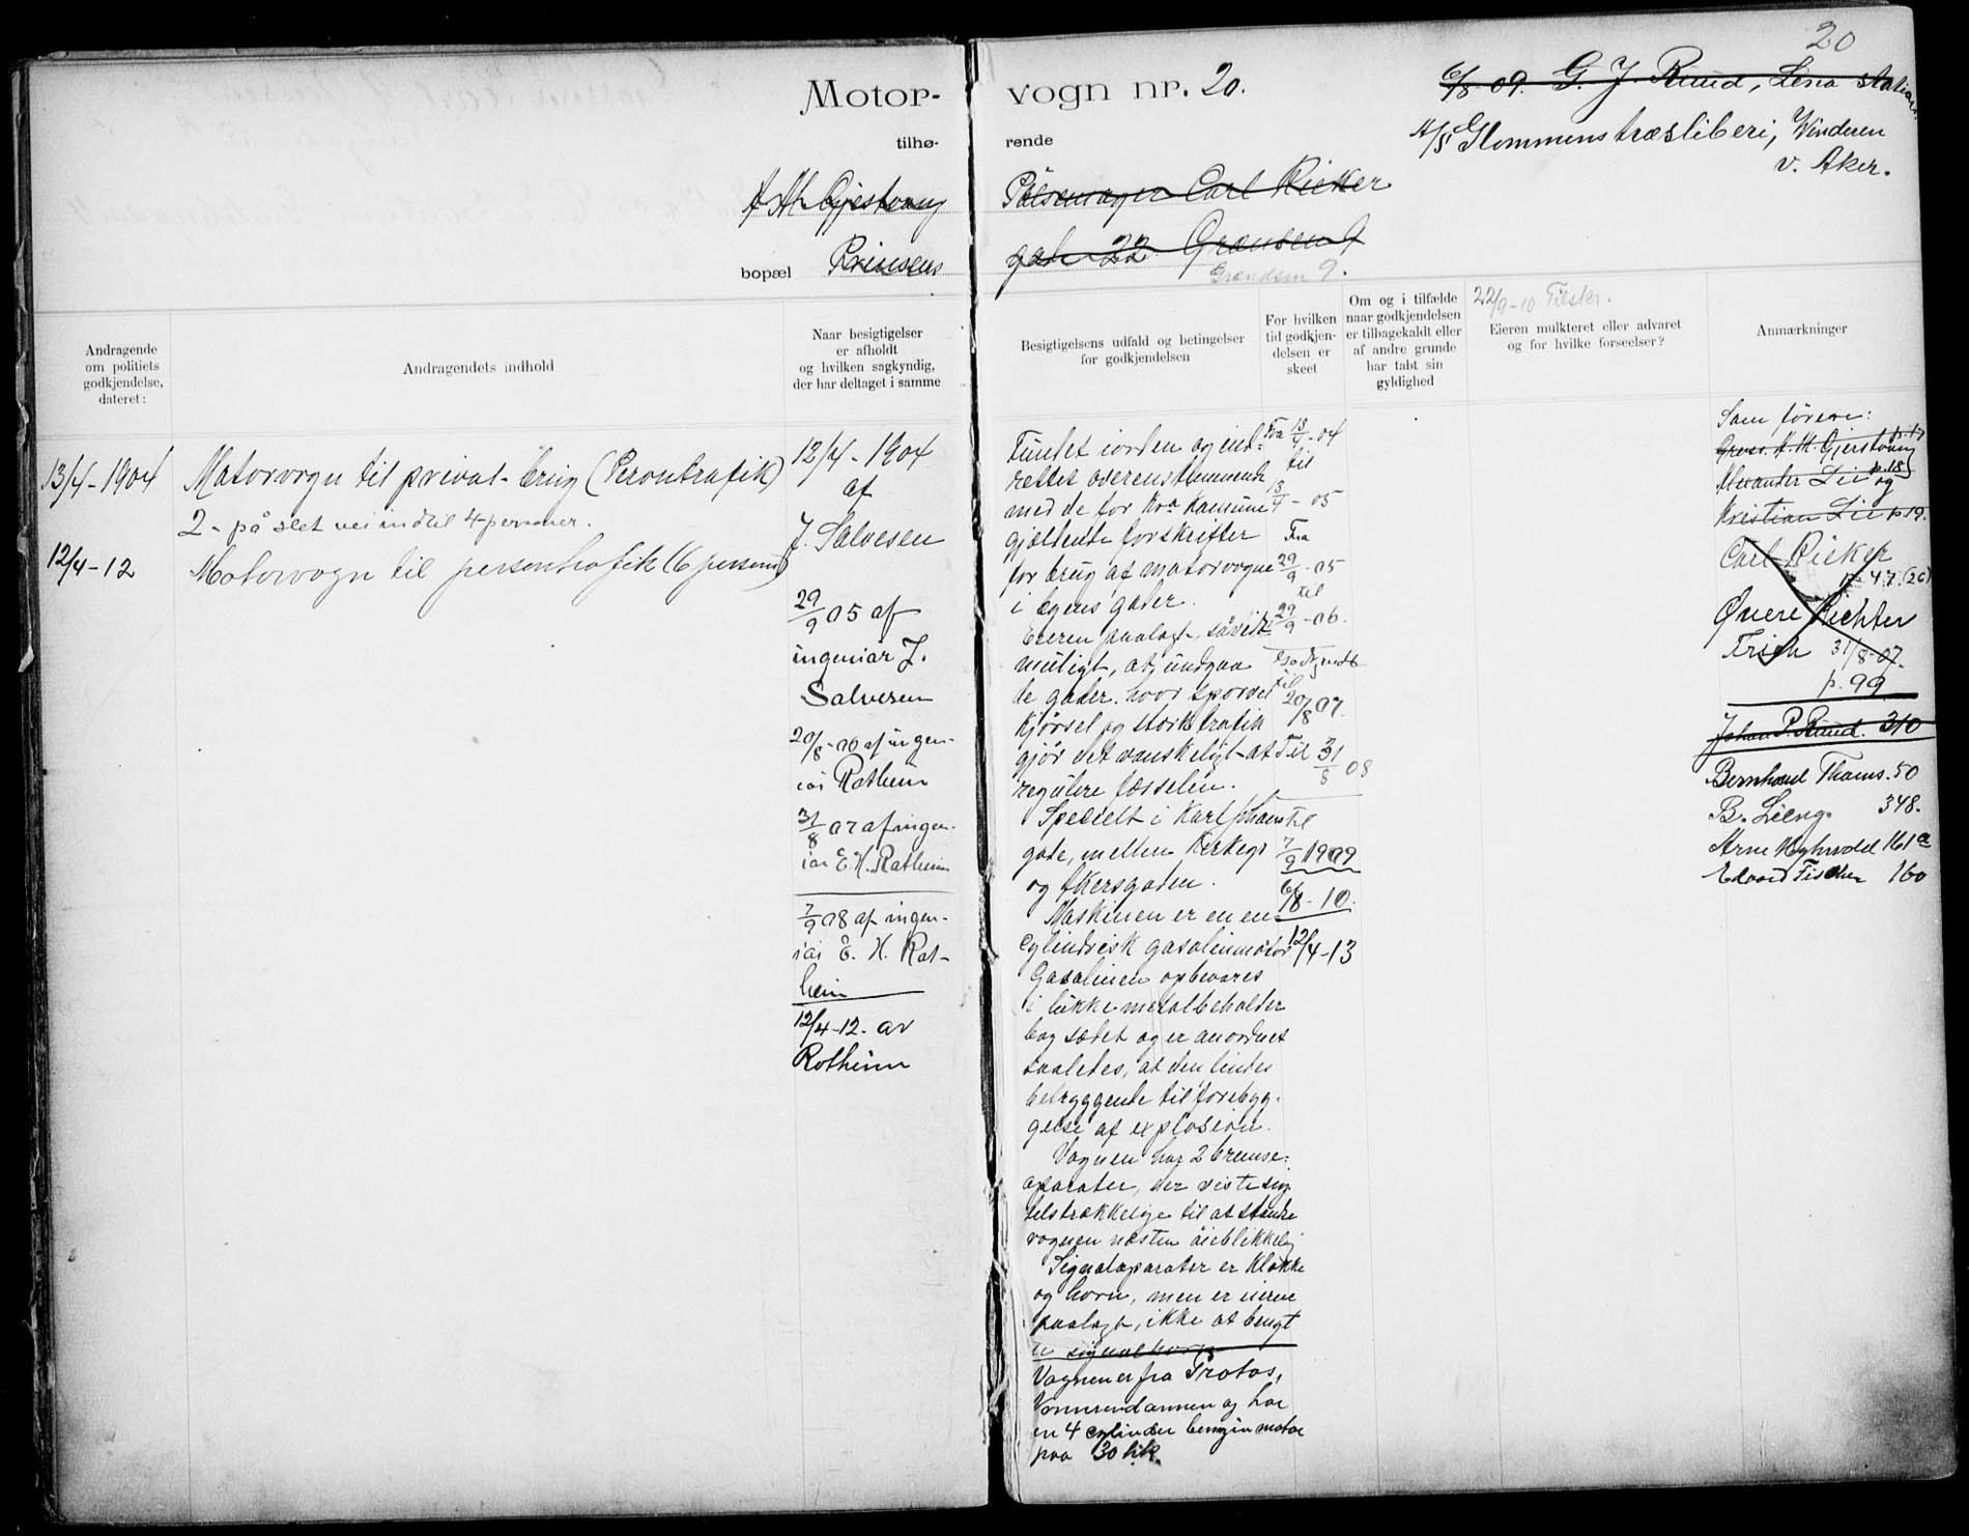 20
Motor-
vogn nr. 20.
6/8-09. G. J. Ruud, Lena station
A/S Glommens træsliberi, Winderen
v. Aker.
tilhø-
rende
A. H. Gjestvang
Pölsemager Carl Ricker
bopæl Prinsens
gate 22. Grænsen 9
Grændsen 9.
22/9-10 Tilskr.
Andragende
om politiets
godkjendelse,
dateret:
Andragendets indhold
Naar besigtigelser
er afholdt
og hvilken sagkyndig,
der har deltaget i samme
Besigtigelsens udfald og betingelser
for godkjendelsen
For hvilken
tid godkjen-
delsen er
skeet
Om og i tilfælde
naar godkjendelsen
er tilbagekaldt eller
af andre grunde
har tabt sin
gyldighed
Eieren mulkteret eller advaret
og for hvilke forseelser?
Anmærkninger
13/4-1904
Motorvogn til privat-brug (Persontrafik)
2- på slet vei indtil 4-personer.
12/4-12
Motorvogn til persontrafik (6 personer)
12/4-1904
af
J. Salvesen
29/9 05 af
ingeniør J.
Salvesen
20/8-06 af ingen-
iør Rotheim
31/8 07 af ingen-
iør E. H. Rotheim
7/9 08 af ingen-
iør E. H. Rot-
heim
12/4-12. av
Rotheim
Fundet iorden og ind-
rettet overensstemmende
med de for Kra Komune
gjældende forskrifter
for brug af motorvogne
i byens gader.
Eieren paalagt, såvidt
muligt, at undgaa
de gader, hvor sporvei
kjørsel og stærk trafik
gjør det vanskeligt at
regulere færselen.
Specielt i Karl Johans
gade, mellem Kirkegt
og Akersgaden.
Maskinen er en en
cylindrisk gasolinmotor
Gasolinen opbevares
i lukke metalbeholder
bag sædet og er anordnet
saaledes, at den findes
betryggende til forebyg-
gelse af explosion.
Vognen har 2 bremse-
aparater, der viste sig
tilstrækkelige til at standse
vognen næsten øieblikkelig
Signalaparater er klokke
og horn, men er eieren
paalagt, ikke at benytte
signalhorn
Vognen er fra Protos,
og har
en 4 cylinder benzin motor
paa 30 hk.
Fra 13/4-04
til
13/4-05
Fra
29/9-05
til
29/9-06.
Godkjendt
til
20/8 07.
Til 31/8 08
Til
7/9 1909
6/8-10.
12/4-13
Som förere:
Gross. A. H. Gjestvang p. 17
Alexander Lie p. 18 og
Kristian Lie p. 19.
Carl Ricker
p. 47. (20)
Øvere Richter
Frisch 31/8-07.
p. 99
Johan P. Ruud. 310
Bernhard Thoms. 50
B. Lieng. 348.
Arne 161a
Edvard Fischer 160